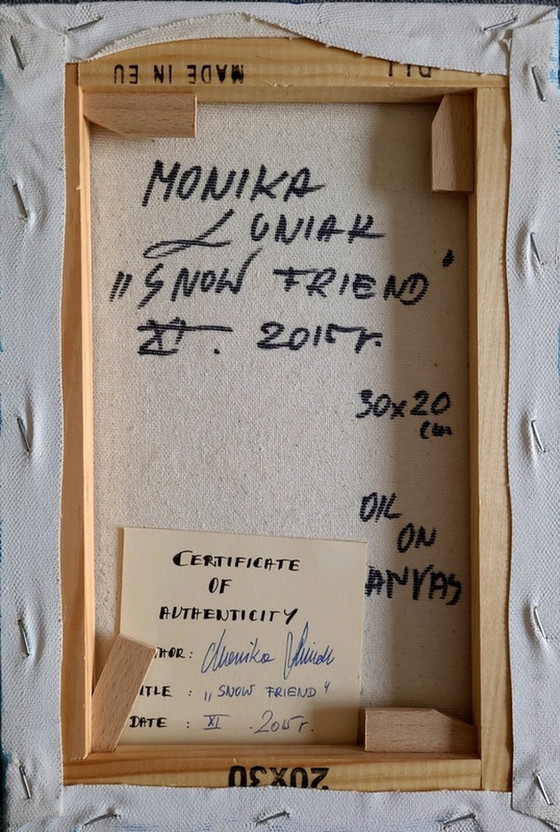 MADE IN EU
MONIKA
LUNIAK
„SNOW FRIEND"
XI. 2015r.
30x20
cm
OIL
ON
CANVAS
CERTIFICATE
OF
AUTHENTICITY
THOR: Monika Luniak
TITLE : „SNOW FRIEND"
DATE : XI .2015r.
20X30